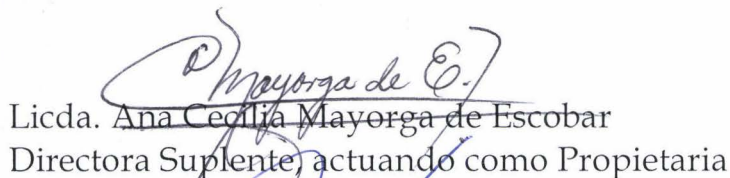 Mayorga de E.
Licda. Ana Cecilia Mayorga de Escobar
Directora Suplente, actuando como Propietaria